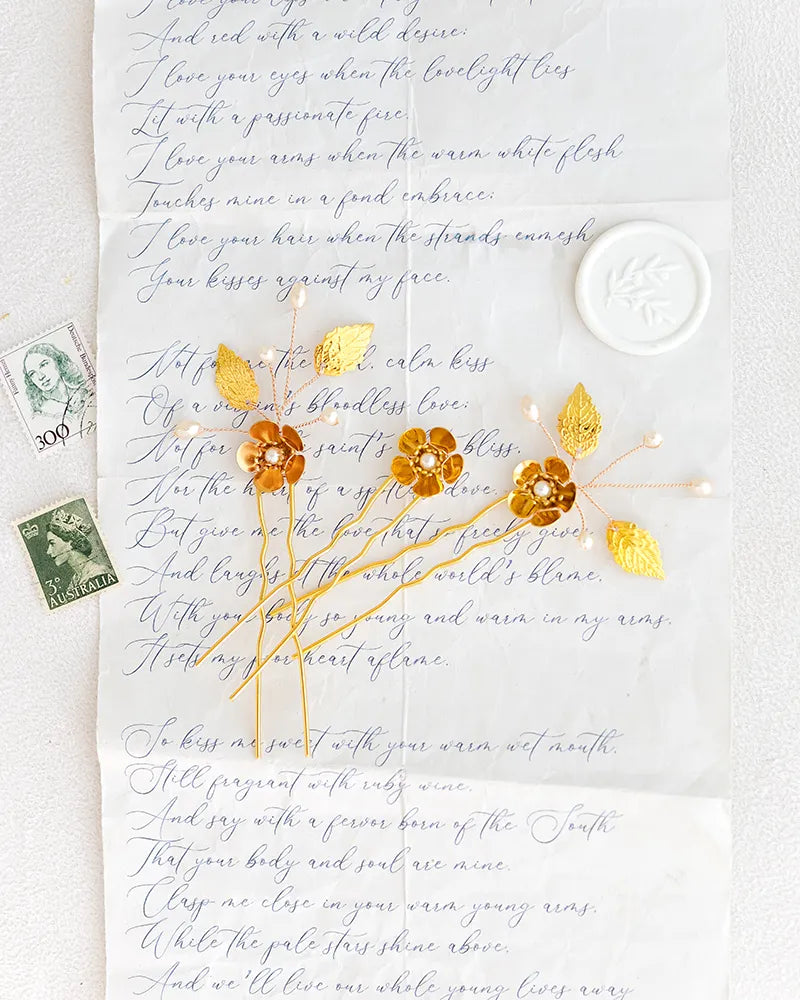 I love your eyes
And red with a wild desire;
I love your eyes when the lovelight lies
Lit with a passionate fire.
I love your arms when the warm white flesh
Touches mine in a fond embrace;
I love your hair when the strands enmesh
Your kisses against my face.
Not for me the calm kiss
Of a virgin's bloodless love;
Not for saint's bliss,
Nor the heart of a spotless dove.
But give me the love that so freely gives
And laughs at the whole world's blame,
With your body so young and warm in my arms,
It sets my poor heart aflame.
So kiss me sweet with your warm wet mouth,
Still fragrant with ruby wine,
And say with a fervor born of the South
That your body and soul are mine.
Clasp me close in your warm young arms,
While the pale stars shine above,
And we'll live our whole young lives away
Deutsche Bundespost
300
3D
AUSTRALIA